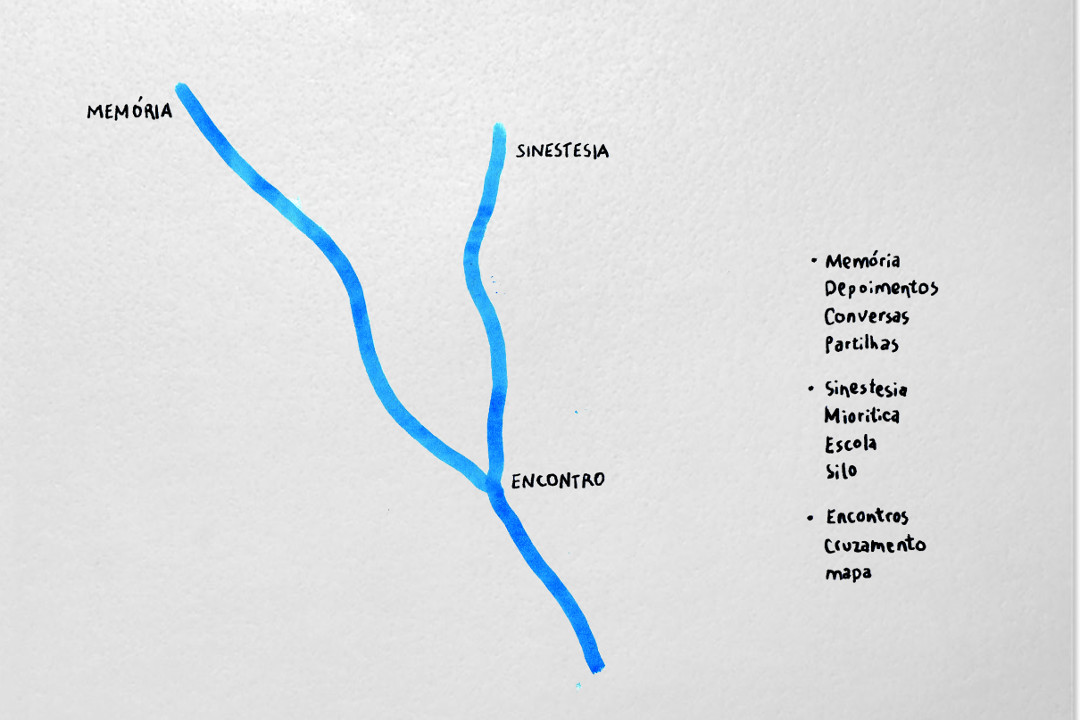 MEMÓRIA
SINESTESIA
ENCONTRO
• Memória
Depoimentos
Conversas
Partilhas
• Sinestesia
Miorítica
Escola
Silo
• Encontros
Cruzamento
mapa